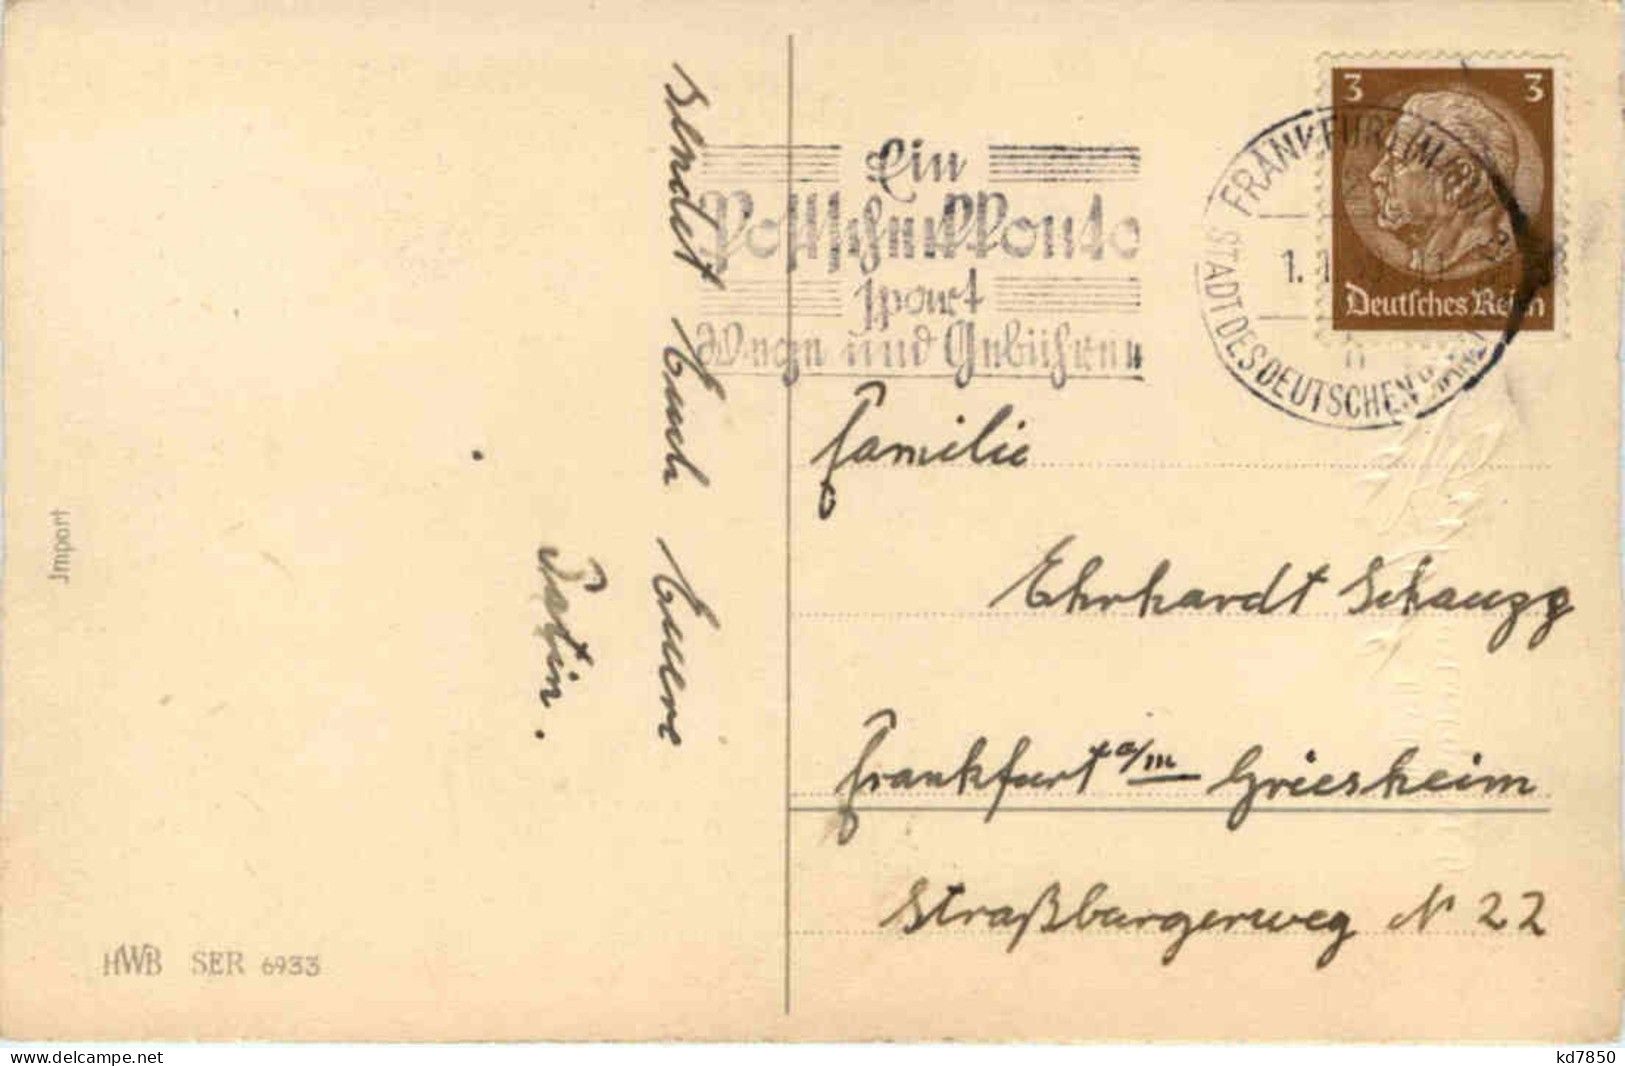 sendet Euch Euere
Patin.
Import
HWB SER 6933
Ein
Postscheckkonto
spart
Wege und Gebühren
FRANKFURT (MAIN)
STADT DES DEUTSCHEN
1.
3 3
Deutsches Reich
Familie
Ehrhardt Schaupp
Frankfurt a/m Griesheim
Straßburgerweg N 22
kd7850
delcampe.net